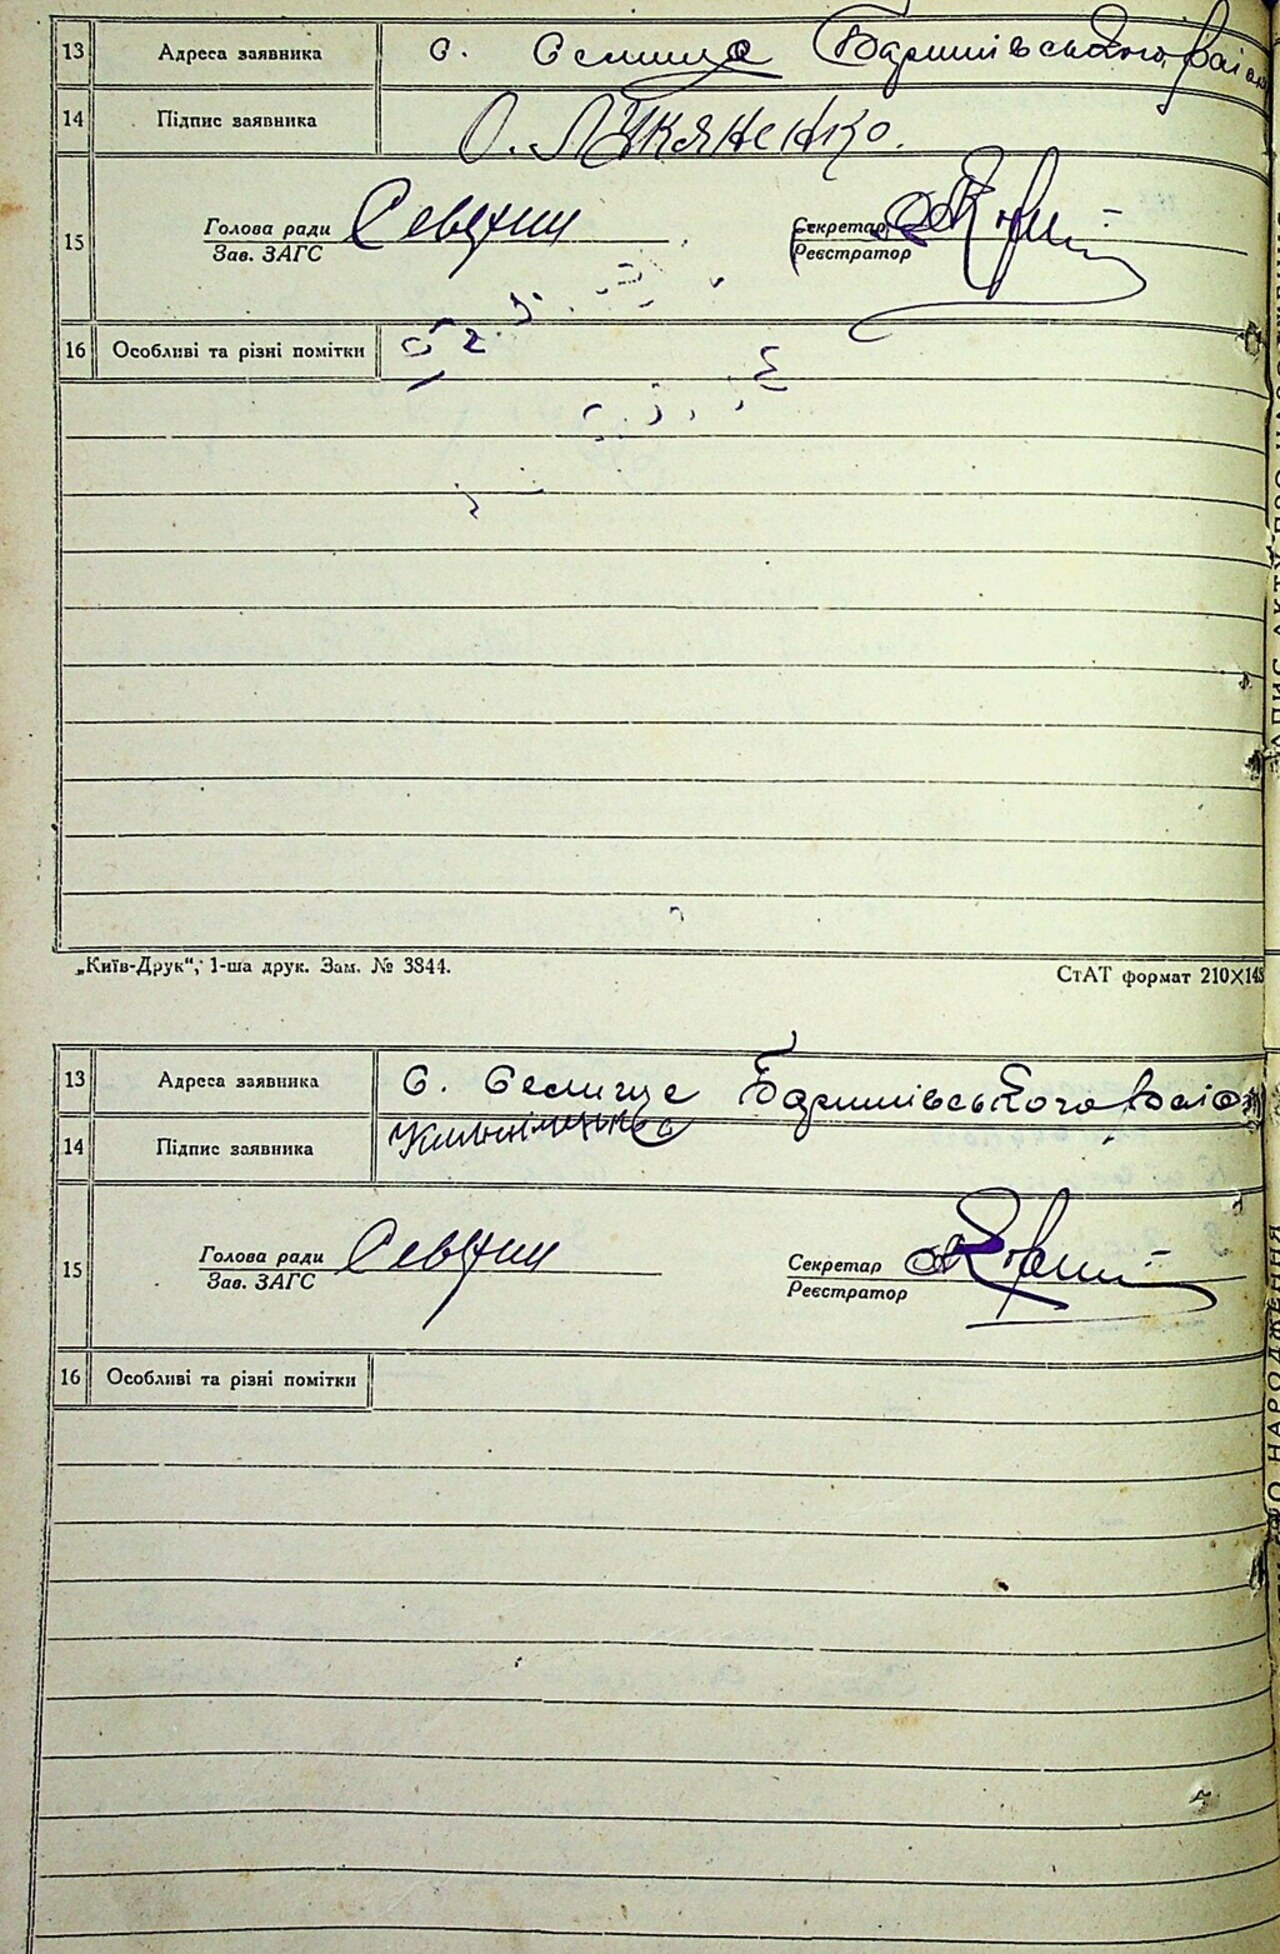 13 Адреса заявника с. Селище Баришівського район
14 Підпис заявника О. Лукяненко.
15 Голова ради Секретар
Зав. ЗАГС Реєстратор
16 Особливі та різні помітки
„Київ-Друк“, 1-ша друк. Зам. № 3844. СтАТ формат 210×148
13 Адреса заявника с. Селище Баришівського район
14 Підпис заявника
15 Голова ради Секретар
Зав. ЗАГС Реєстратор
16 Особливі та різні помітки
НАРОДЖЕННЯ